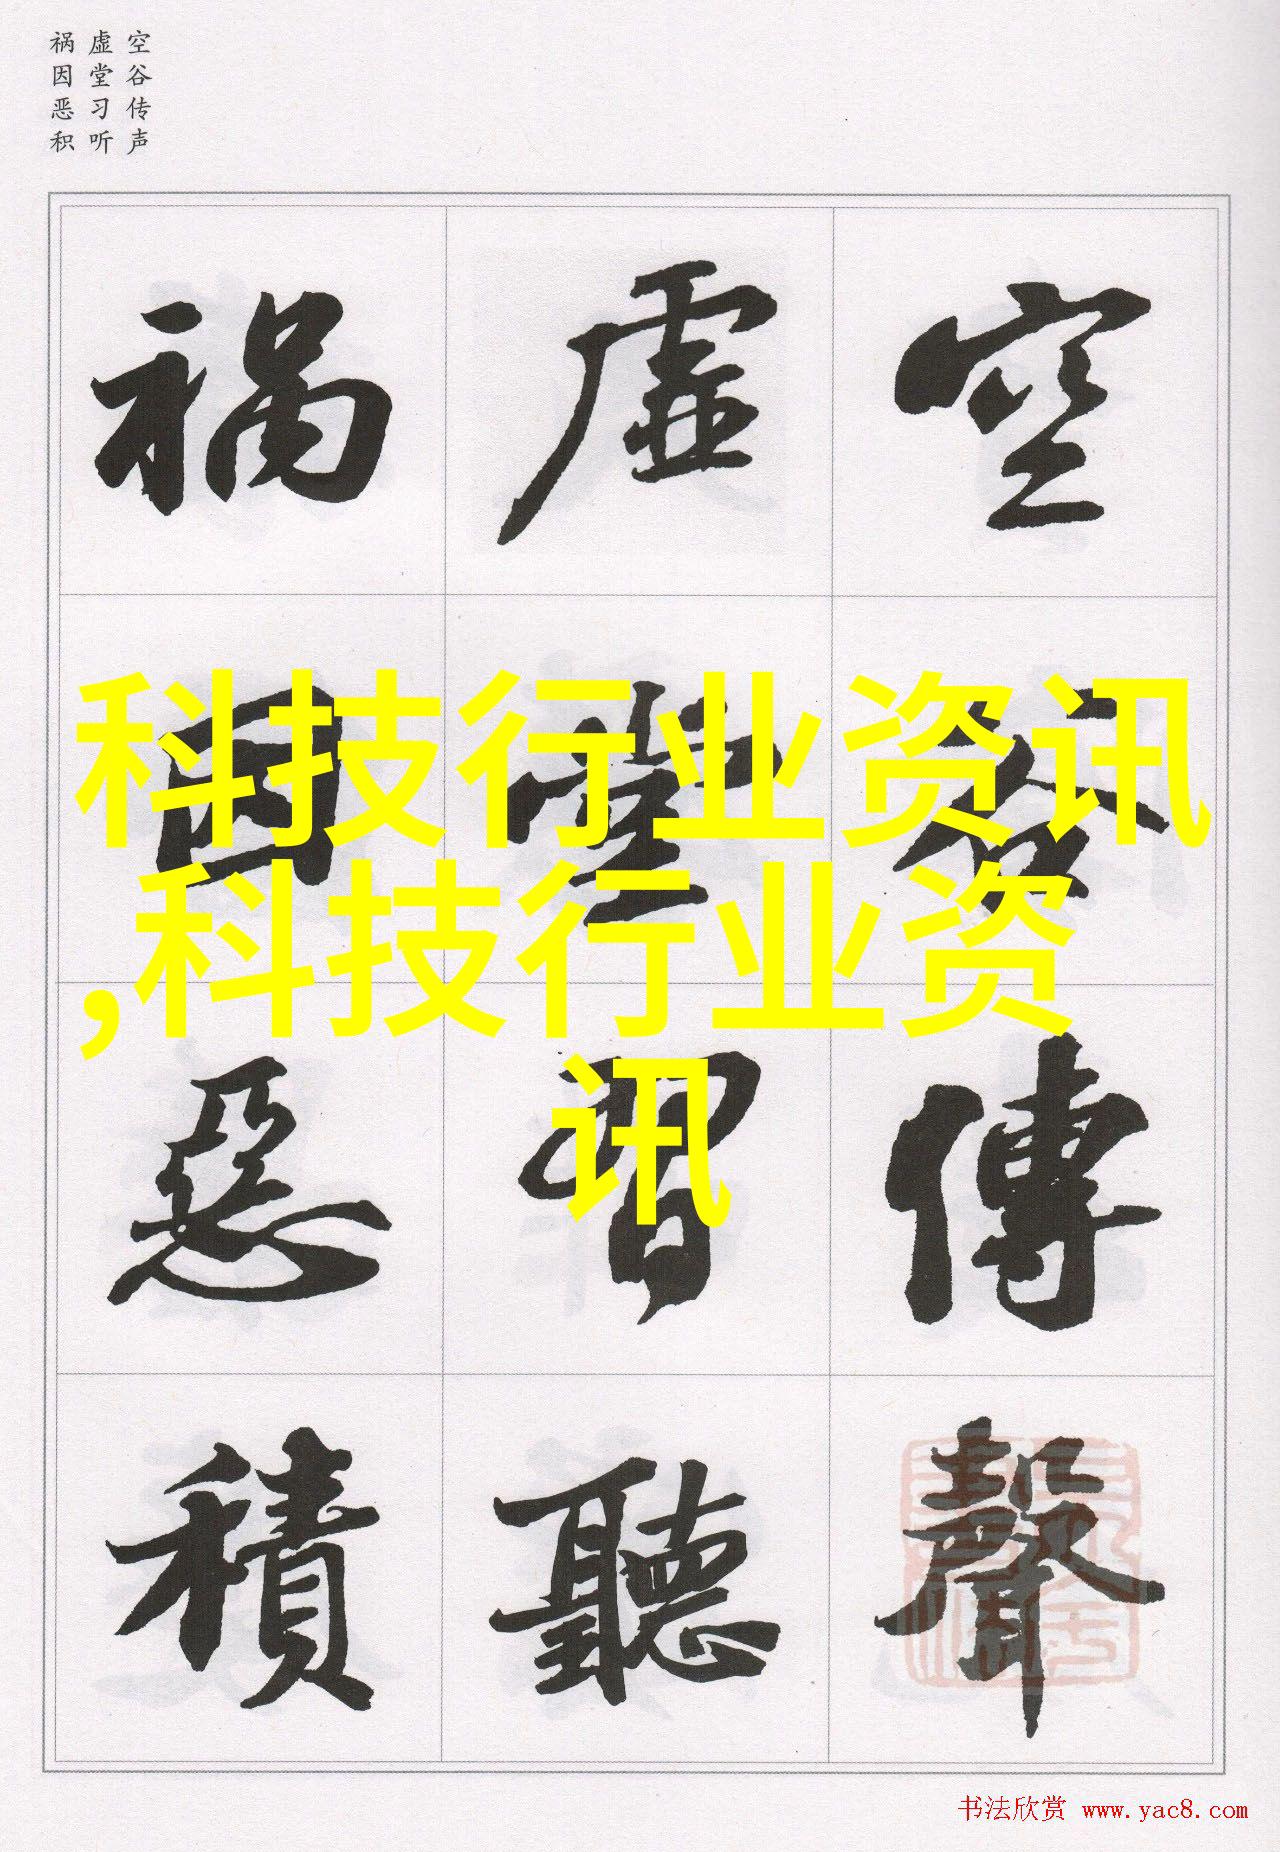 空谷传声
虚堂习听
祸因恶积
空谷傳聲
虛堂習聽
禍因惡積
科技行业资讯
,科技行业资
讯
书法欣赏 www.yac8.com